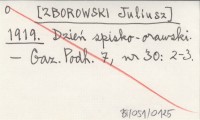 [ZBOROWSKI Juliusz]
1919. Dzień spisko-orawski.
— Gaz. Podh. 7, nr 30: 2-3.